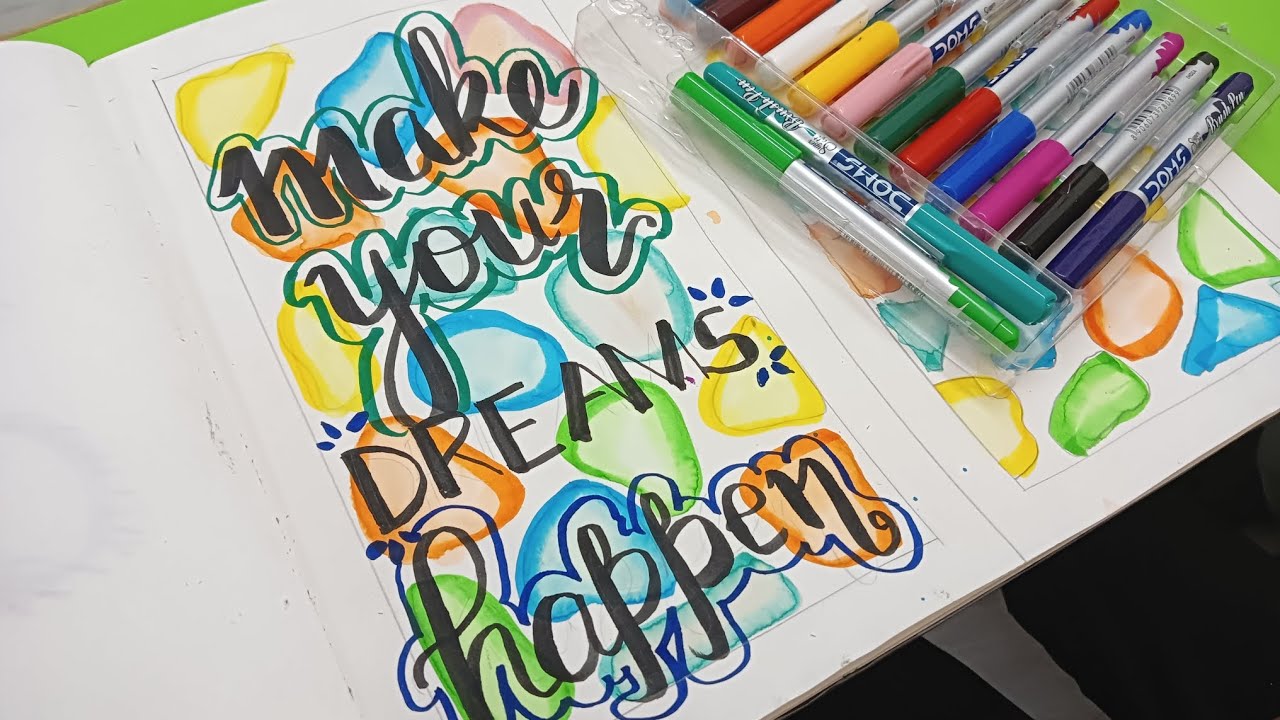 make
your
DREAMS
happen
DOMS Brush Pen
DOMS
DOMS
DOMS Brush Pen